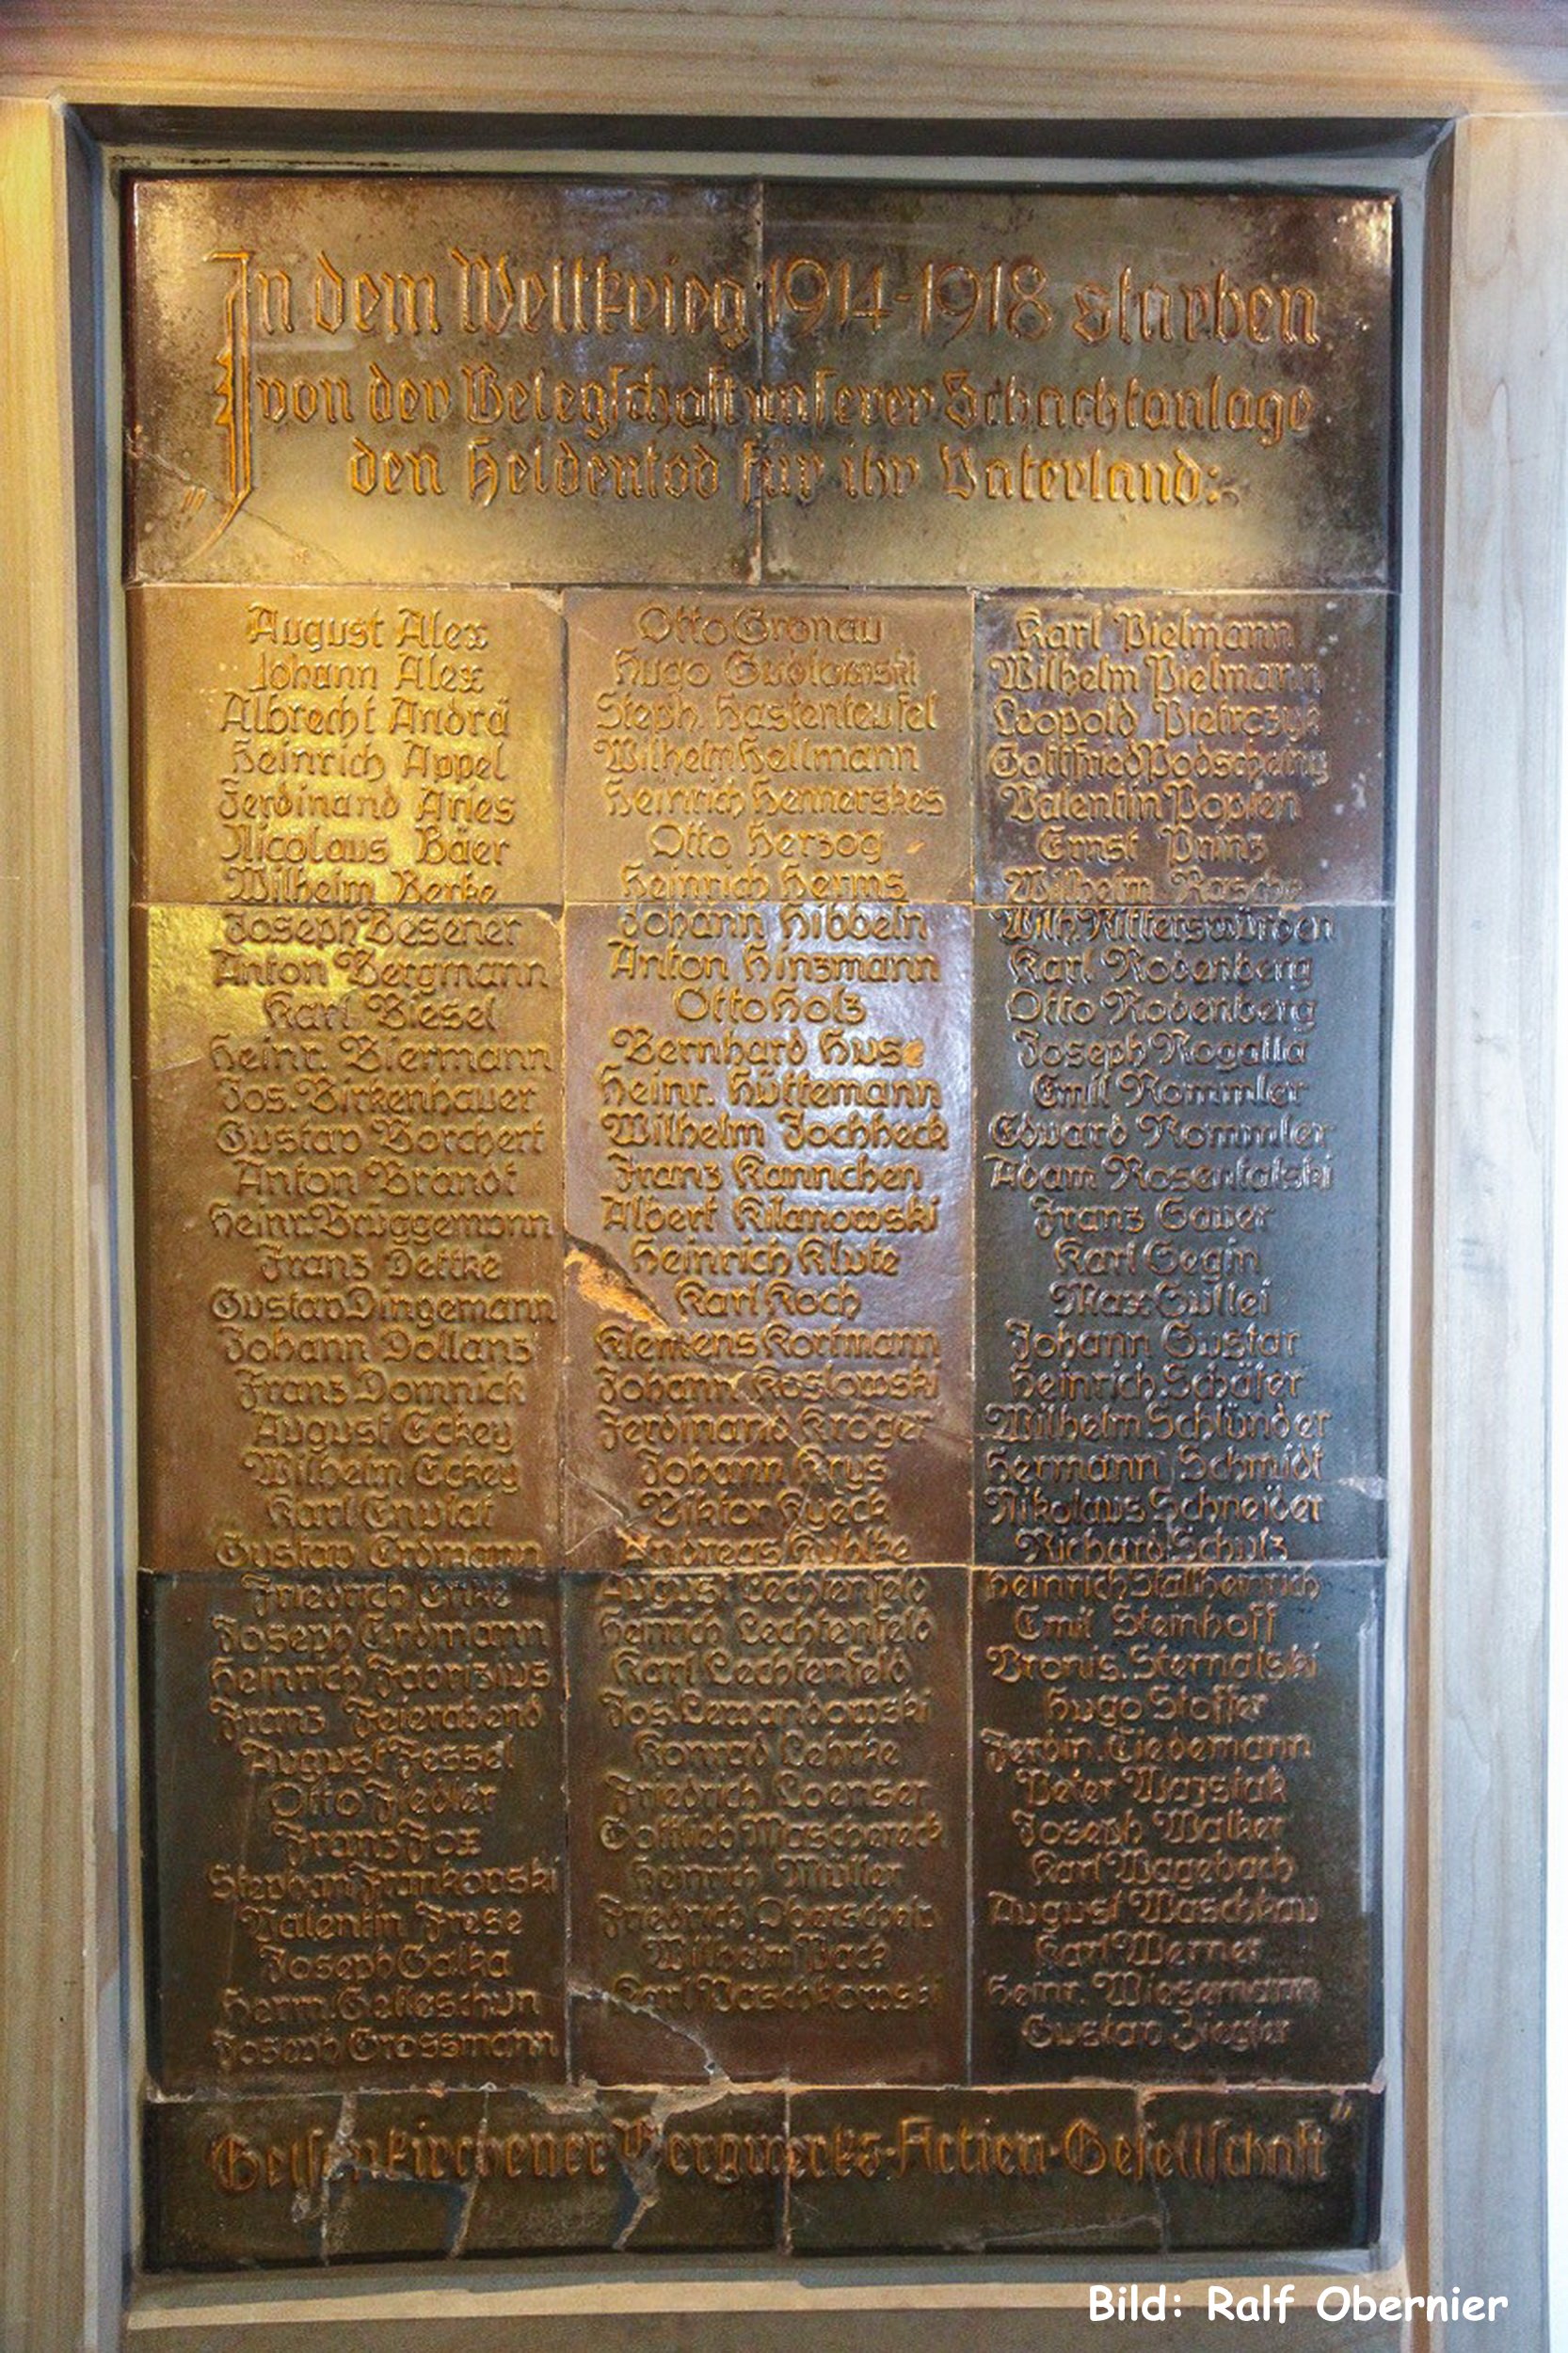 In dem Weltkrieg 1914-1918 starben
von der Belegschaft unserer Schachtanlage
„ den Heldentod für ihr Vaterland:
August Alex
Johann Alex
Albrecht Andrä
Heinrich Appel
Ferdinand Aries
Nicolaus Bäer
Wilhelm Berke
Joseph Besener
Anton Bergmann
Karl Biesel
Heinr. Biermann
Jos. Birkenhauer
Gustav Borchert
Anton Brandt
Heinr. Brüggemann
Franz Dettke
Gustav Dingemann
Johann Dollanz
Franz Domnick
August Eckey
Wilhelm Eckey
Karl Enulat
Gustav Erdmann
Friedrich Enke
Joseph Erdmann
Heinrich Fabrizius
Franz Feierabend
August Fessel
Otto Fiedler
Franz Fox
Stephan Frankowski
Valentin Frese
Joseph Galka
Herm. Gelleschun
Joseph Grossmann
Otto Gronau
Hugo Gublowski
Steph. Hastenteufel
Wilhelm Hellmann
Heinrich Hennerskes
Otto Herzog
Heinrich Herms
Johann Hibbeln
Anton Hinzmann
Otto Holz
Bernhard Huse
Heinr. Hüttemann
Wilhelm Jochheck
Franz Kannchen
Albert Kilanowski
Heinrich Klute
Karl Koch
Klemens Kortmann
Johann Koslowski
Ferdinand Kröger
Johann Krys
Viktor Kueck
Andreas Kuhlke
August Lechtenfeld
Heinrich Lechtenfeld
Karl Lechtenfeld
Jos. Lewandowski
Konrad Lehrke
Friedrich Loenser
Gottlieb Maschereck
Heinrich Müller
Friedrich Oberschelp
Wilhelm Pack
Karl Paschkowski
Karl Pielmann
Wilhelm Pielmann
Leopold Pietrczyk
Gottfried
Valentin Popien
Ernst Prinz
Wilhelm Rasche
Wilh. Ritterswürden
Karl Rodenberg
Otto Rodenberg
Joseph Rogalla
Emil Rommler
Eduard Rommler
Adam Rosentalski
Franz Sauer
Karl Segin
Max Sullei
Johann Sustar
Heinrich Schäfer
Wilhelm Schlünder
Hermann Schmidt
Nikolaus Schneider
Richard Schulz
Heinrich Stallheinrich
Emil Steinhoff
Bronis. Sternalski
Hugo Stoffer
Ferdin. Tiedemann
Peter
Joseph Walker
Karl Wagebach
August Waschkau
Karl Werner
Heinr. Wiesemann
Gustav Ziegler
Gelsenkirchener Bergwerks-Actien-Gesellschaft“
Bild: Ralf Obernier